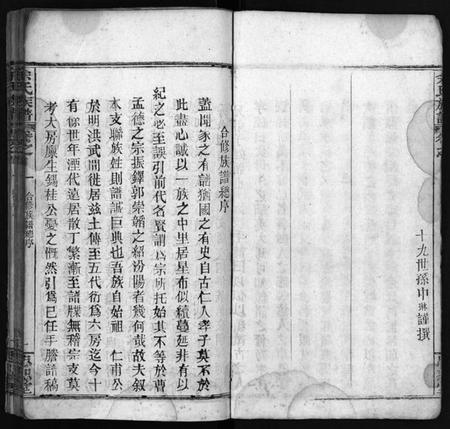 十九世孫中琳謹撰
合修族譜總序
蓋聞家之有譜猶國之有史自古仁人孝子莫不於
此盡心誠以一族之中里居星布似續蔓延非有以
紀之必至誤引前代名賢謂為宗所托始其不等於曹
孟德之宗振鐸郭崇韜之紹汾陽者幾何哉故夫叙
本支聯族姓則譜誠巨典也吾族自始祖 仁甫公
於明洪武間徙居茲土傳至五代衍為六房迄今十
有餘世年湮代遠居散丁繁漸至譜牒無稽宗支莫
考大房原生錫桂公憂之慨然引為己任手謄譜稿
余氏族譜
卷之一
合修族譜總序